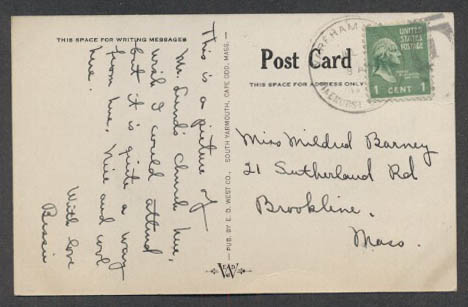 THIS SPACE FOR WRITING MESSAGES
This is a picture of
Mr. Lund's church here,
wish I would attend
but it is quite a way
from here. Nice and cool
here.
With love
Bessie
PUB. BY E. D. WEST CO., SOUTH YARMOUTH, CAPE COD, MASS.
Post Card
THIS SPACE FOR ADDRESS ONLY
UNITED STATES
POSTAGE
1 CENT 1
Miss Mildred Barney
21 Sutherland Rd
Brookline,
Mass.